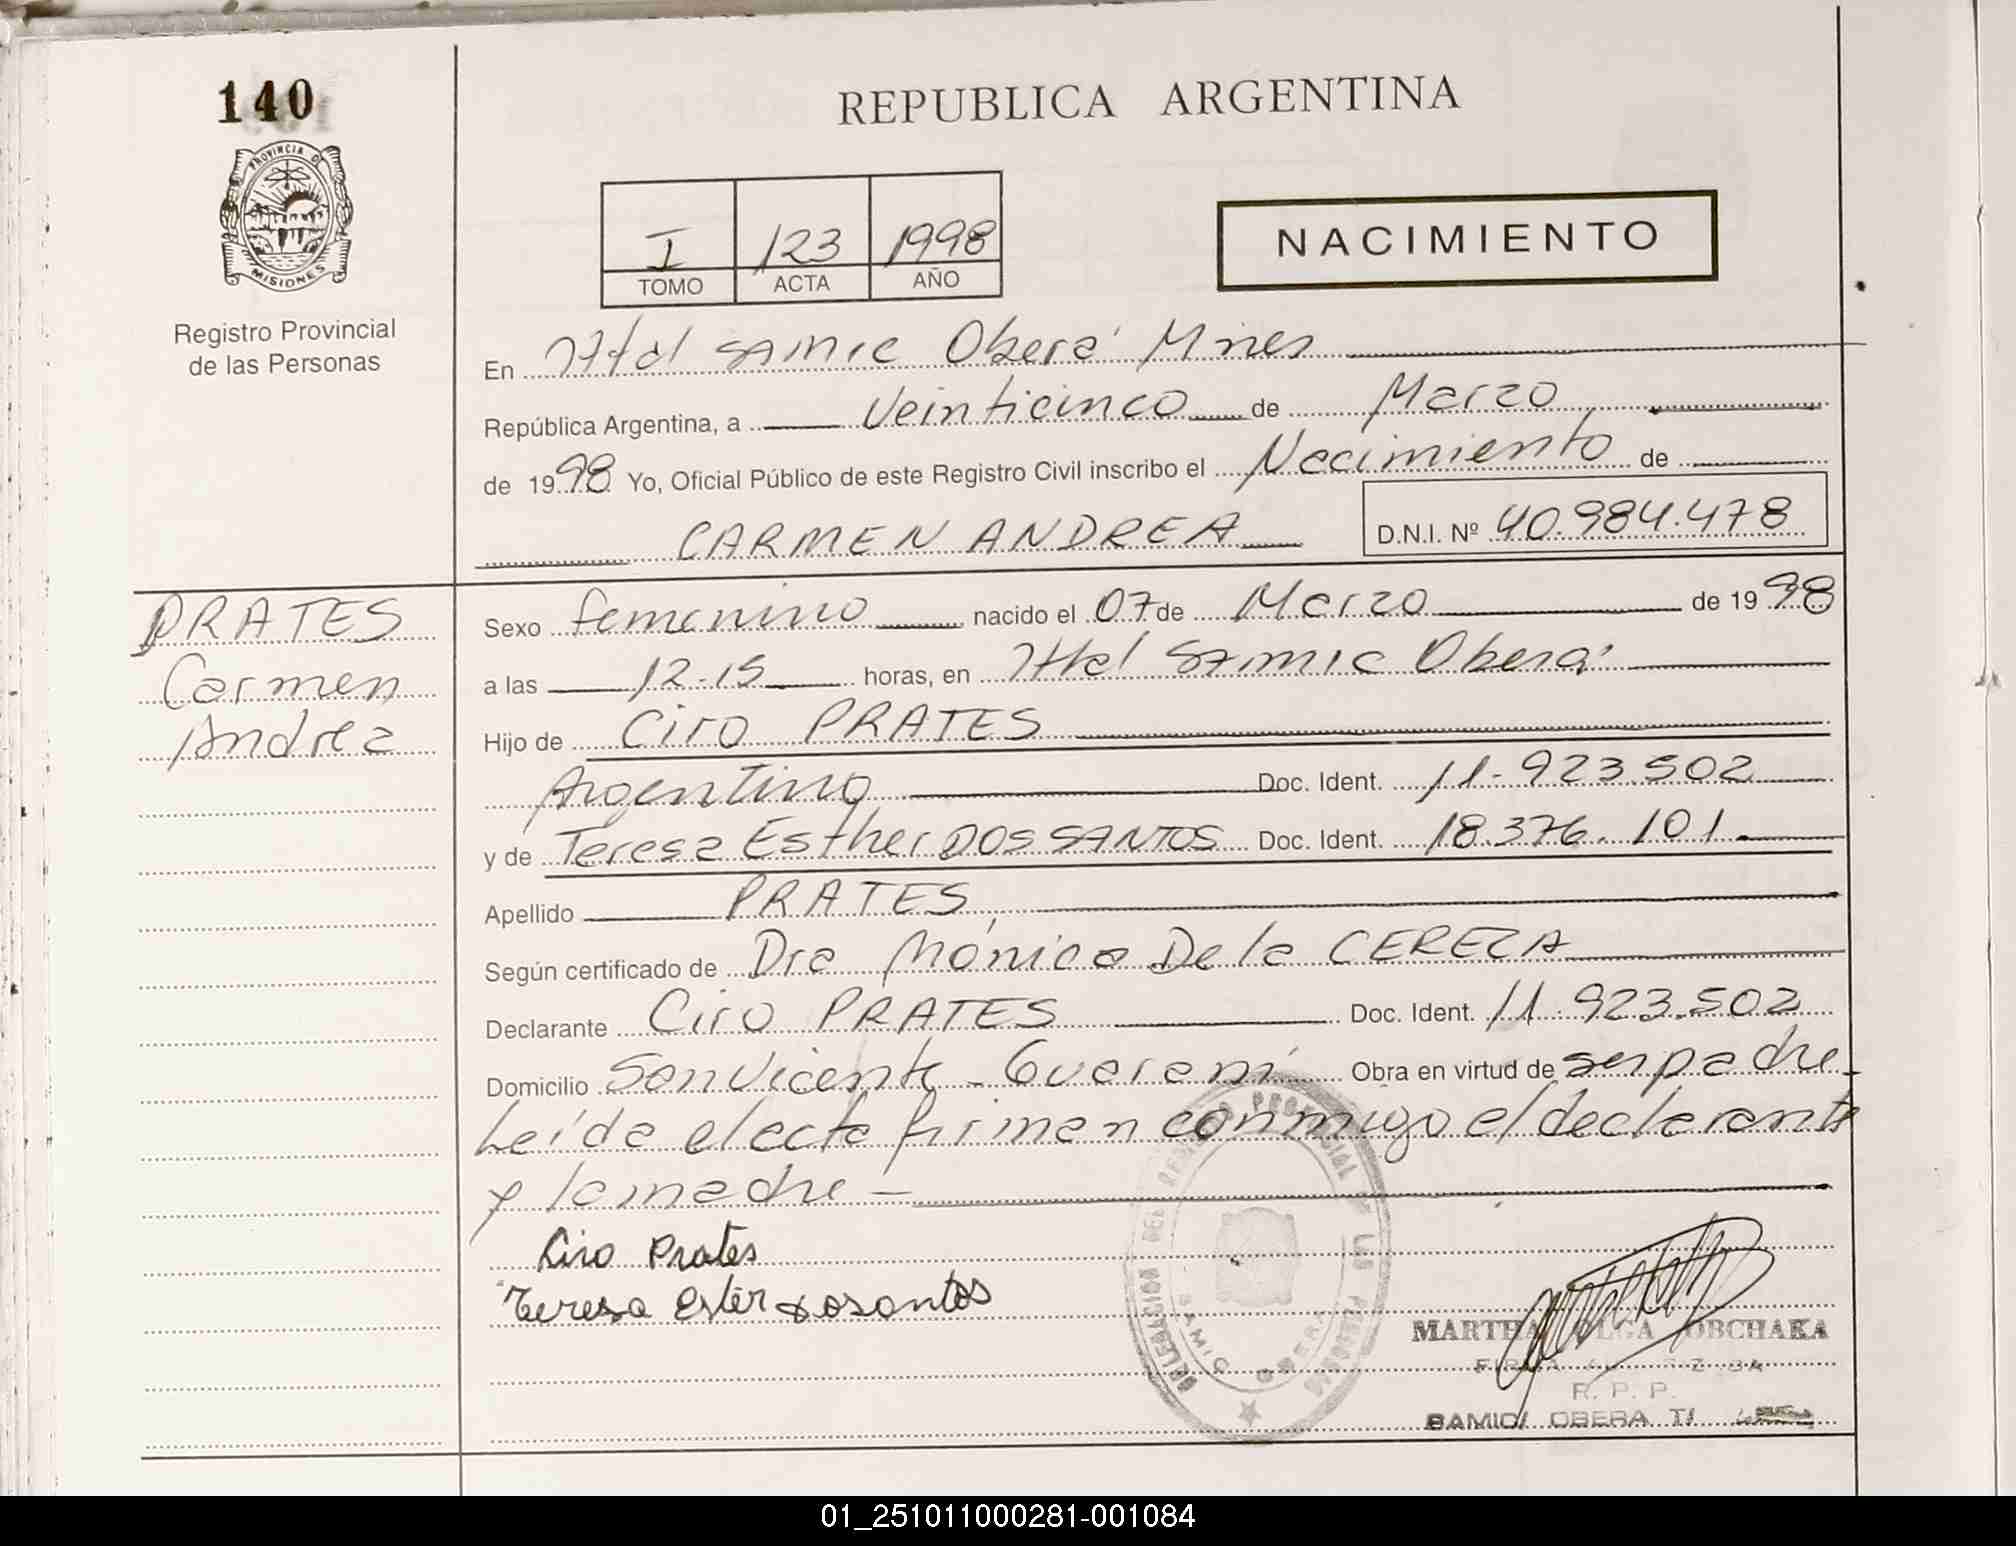 140
REPUBLICA ARGENTINA
PROVINCIA D
MISIONES
Registro Provincial
de las Personas
I 123 1998
TOMO ACTA AÑO
NACIMIENTO
En Htal SAMIC Oberá Mnes
República Argentina, a Veinticinco de Marzo
de 1998 Yo, Oficial Público de este Registro Civil inscribo el Nacimiento de
CARMEN ANDREA D.N.I. Nº 40.984.478
PRATES
Carmen
Andrea
Sexo femenino nacido el 07 de Marzo de 1998
a las 12.15 horas, en Htal SAMIC Oberá
Hijo de Ciro PRATES
Argentino Doc. Ident. 11.923.502
y de Teresa Esther DOS SANTOS Doc. Ident. 18.376.101
Apellido PRATES
Según certificado de Dra Mónica De la CEREZA
Declarante Ciro PRATES Doc. Ident. 11.923.502
Domicilio San Vicente - Guaraní Obra en virtud de ser padre
Leída el acta firman conmigo el declarante
y la madre
Ciro Prates
Teresa Ester dosantos
DELEGACION DEL REGISTRO PROVINCIAL DE LAS PERSONAS
SAMIC OBERA
MARTHA OLGA OBCHAKA
R. P. P.
SAMIC/ OBERA T/
01_251011000281-001084